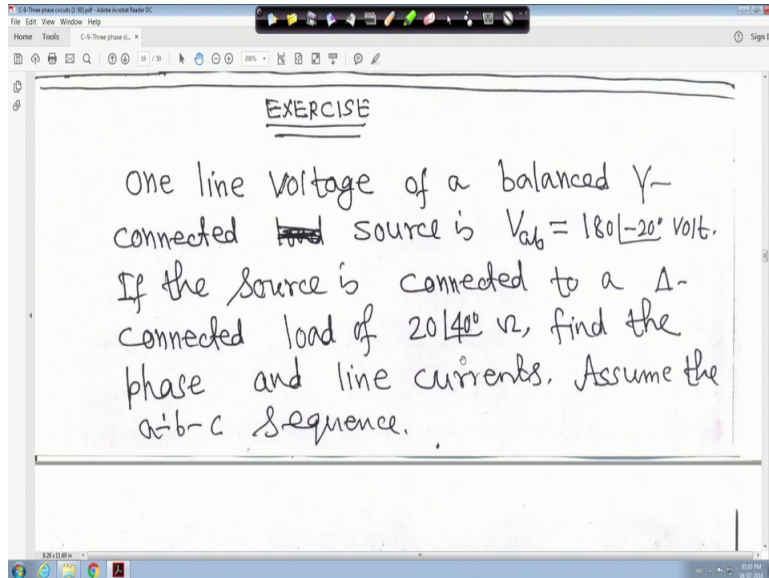 C-9-Three phase circuits [1-50].pdf - Adobe Acrobat Reader DC
File Edit View Window Help
Home Tools C-9-Three phase ci... × Sign
19 / 50 200%
EXERCISE
One line voltage of a balanced Y-
connected source is Vab = 180∠-20° volt.
If the source is connected to a Δ-
connected load of 20∠40° Ω, find the
phase and line currents. Assume the
a-b-c sequence.
8.26 x 11.69 in
01:07 PM